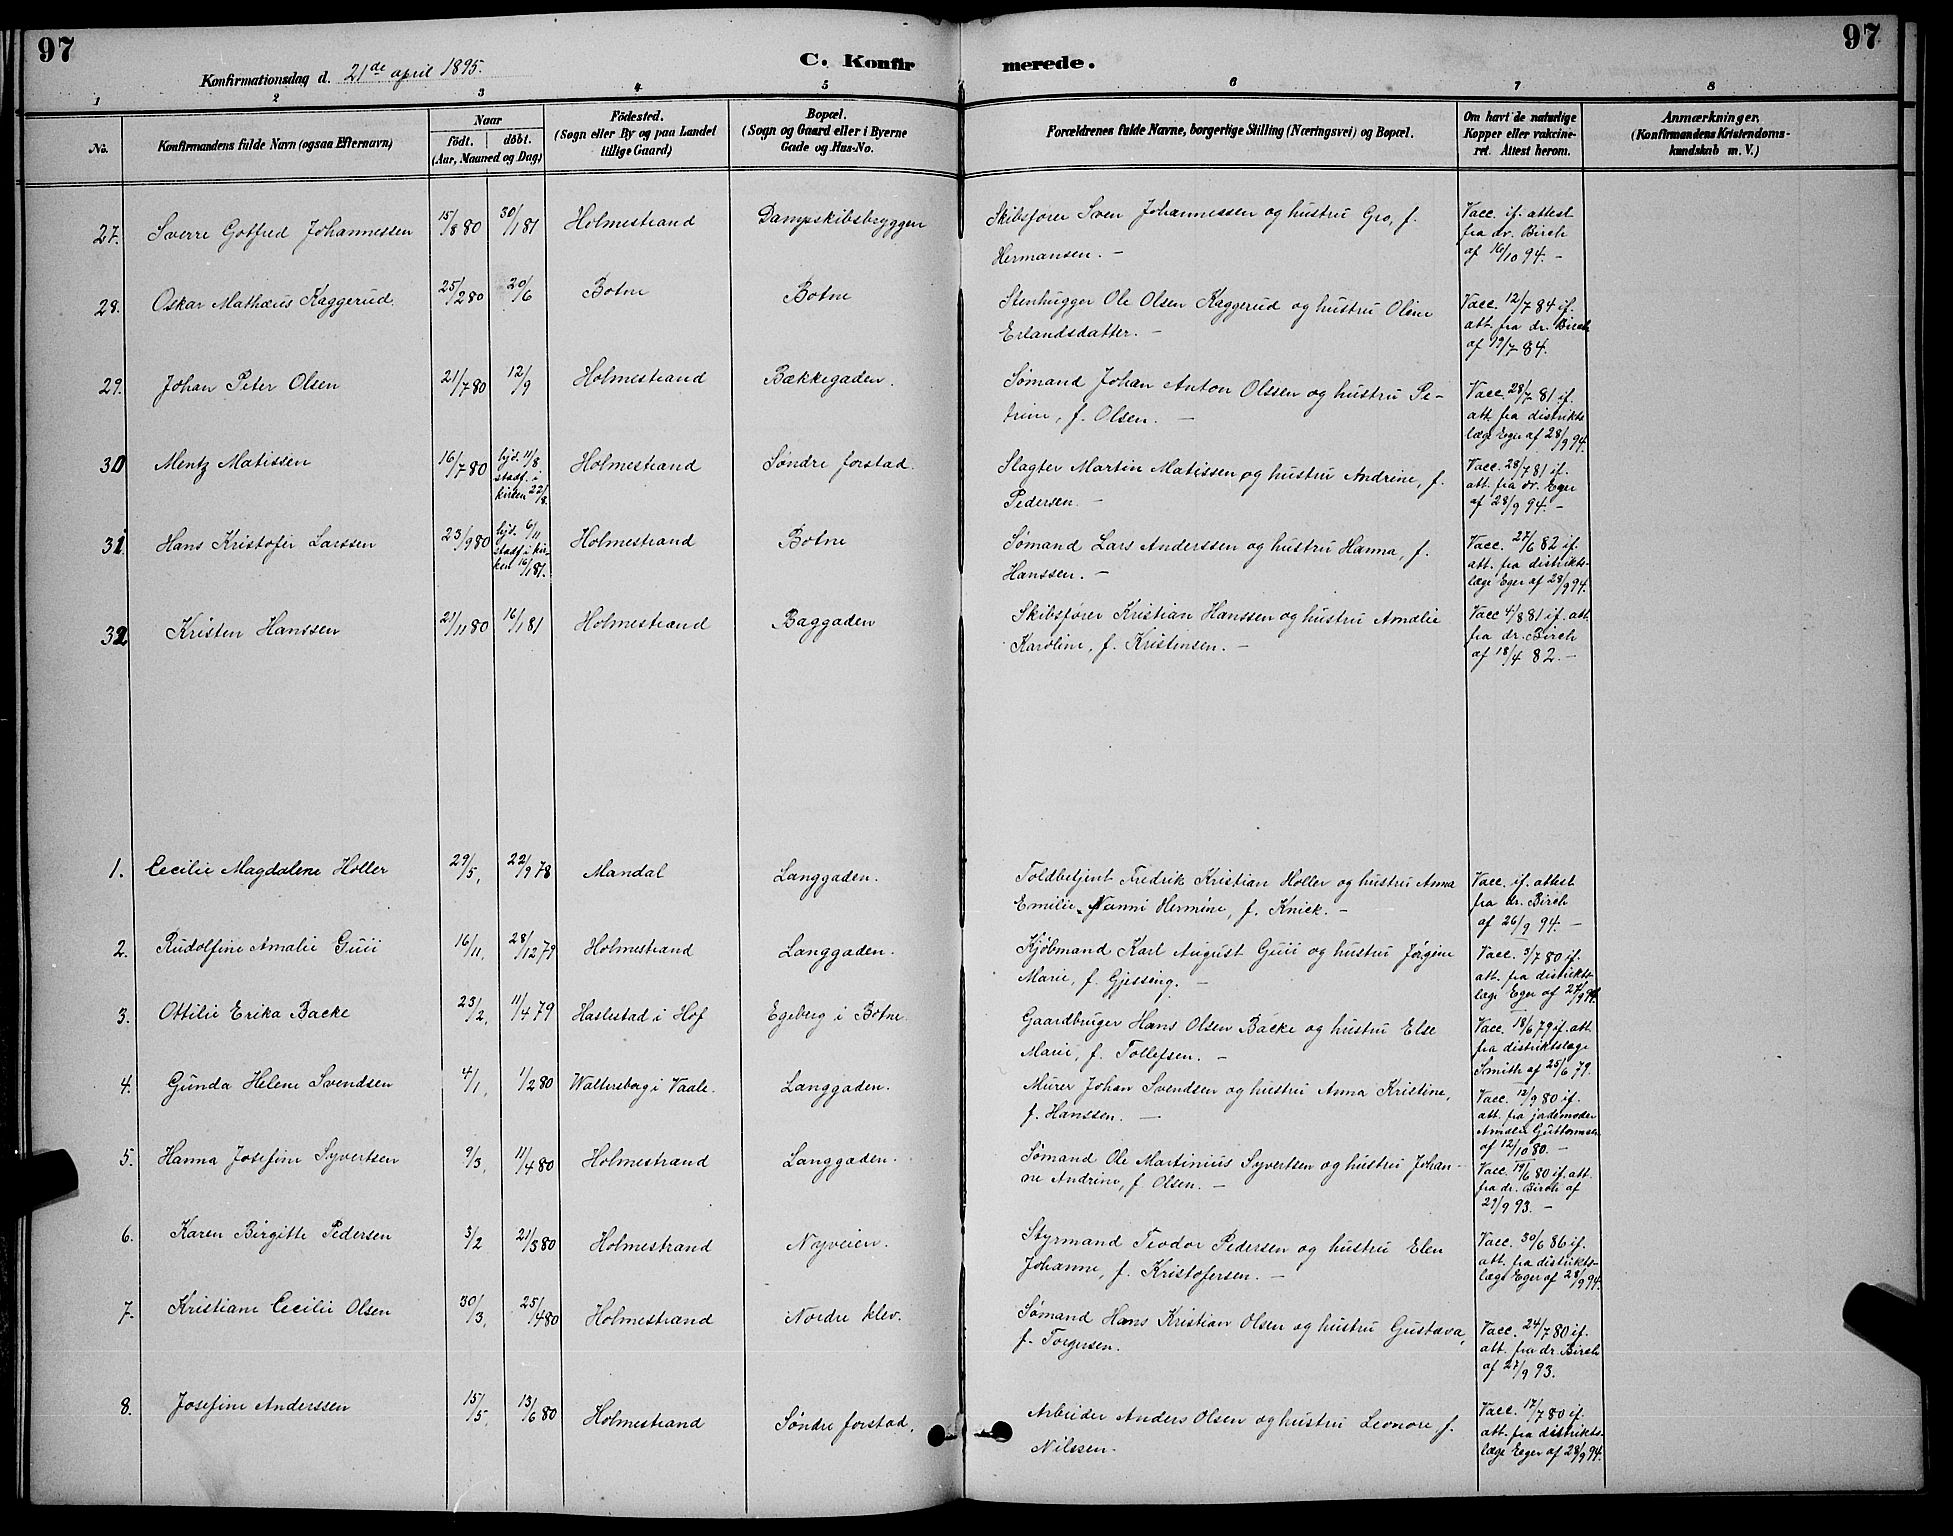 97
97
Konfirmationsdag d. 21de april 1895.
C. Konfirmerede.
1 2 3 4 5 6 7 8
No.
Konfirmandens fulde Navn (ogsaa Efternavn)
Naar
født. døbt.
(Aar, Maaned og Dag)
Födested.
(Sogn eller By og paa Landet
tillige Gaard)
Bopæl.
(Sogn og Gaard eller i Byerne
Gade og Hus-No.
Forældrenes fulde Navne, borgerlige Stilling (Næringsvei) og Bopæl.
Om havt de naturlige
Kopper eller vakcine-
ret. Attest herom.
Anmærkninger.
(Konfirmandens Kristendoms-
kundskab m. V.)
27. Sverre Gotfred Johannessen 15/8 80 30/1 81 Holmestrand Dampskibsbryggen Skibsfører Sven Johannessen og hustru Gro, f.
Hermansen. –
Vacc. if. attest
fra dr. Birch
af 16/10 94. –
28. Oskar Mathæus Kaggerud 25/2 80 20/6 Botne Botne Stenhugger Ole Olsen Kaggerud og hustru Oline
Erlandsdatter. –
Vacc. 12/7 84 if.
att. fra dr. Birch
af 19/7 84.
29. Johan Peter Olsen 21/7 80 12/9 Holmestrand Bækkegaden. Sømand Johan Anton Olssen og hustru Pe-
trine, f. Olsen. –
Vacc. 28/7 81 if.
att. fra distrikts
læge Eger af 28/9 94.
30 Mentz Matissen 16/7 80 hjd. 11/8
stadf. i
kirken 22/8.
Holmestrand Søndre forstad. Slagter Martin Matissen og hustru Andrine, f.
Pedersen. –
Vacc. 28/7 81 if.
att. fra dr. Eger
af 28/9 94. –
31. Hans Kristofer Larssen 23/9 80 hjd. 6/11
stadf. i kir-
ken 16/1 81.
Holmestrand Botne Sømand Lars Anderssen og hustru Hanna, f.
Hanssen. –
Vacc. 27/6 82 if.
att. fra distrikts-
læge Eger af 28/9 94.
32 Kristen Hanssen 21/11 80 16/1 81 Holmestrand Baggaden Skibsfører Kristian Hanssen og hustru Amalie
Karoline, f. Kristensen. –
Vacc 4/8 81 if. att.
fra dr. Birch
af 18/4 82. –
1. Cecilie Magdalene Holler 29/5, 22/9 78 Mandal Langgaden. Toldbetjent Fredrik Kristian Holler og hustru Anna
Emilie Nanni Hermine, f. Knick. –
Vacc. if. attest
fra dr. Birch
af 26/9 94. –
2. Rudolfine Amalie Guii 16/11, 28/12 79 Holmestrand Langgaden. Kjøbmand Karl August Guii og hustru Jørgine
Marie, f. Gjessing. –
Vacc. 3/7 80 if.
att. fra distrikts-
læge Eger af 27/9 94.
3. Ottilie Erika Backe 23/2, 11/4 79 Haslestad i Hof Egeberg i Botne. Gaardbruger Hans Olsen Backe og hustru Else
Marie, f. Tollefsen. –
Vacc. 18/6 79 if. att.
fra distriktslæge
Smith af 25/6 79.
4. Gunda Helene Svendsen 4/1, 1/2 80 Waltersborg i Vaale. Langgaden. Murer Johan Svendsen og hustru Anna Kristine,
f. Hanssen. –
Vacc. 12/9 80 if.
att. fra jordemoder
Amalie Guttormsen
af 12/10 80. –
5. Hanna Josefine Syvertsen 9/3, 11/4 80 Holmestrand Langgaden. Sømand Ole Martinius Syvertsen og hustru Johan-
ne Andrine, f. Olsen. –
Vacc. 19/6 80 if. att.
fra dr. Birch af
29/9 93. –
6. Karen Birgitte Pedersen 3/2 21/3 80 Holmestrand Nyveien. Styrmand Teodor Pedersen og hustru Elen
Johanne, f. Kristofersen. –
Vacc. 30/6 86 if.
att. fra distrikts-
læge Eger af 28/9 94.
7. Kristiane Cecilie Olsen 30/3, 25/4 80 Holmestrand Nordre klev. Sømand Hans Kristian Olsen og hustru Gustava,
f. Torgersen.
Vacc. 24/7 80 if.
att. fra dr. Birch
af 27/9 93.
8. Josefine Anderssen 15/5, 13/6 80 Holmestrand Søndre forstad. Arbeider Anders Olsen og hustru Leonore f.
Nilssen.
Vacc. 17/7 80 if.
att. fra distrikts-
læge Eger af 28/9 94.